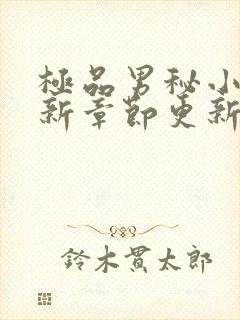 極品男秘小
新章節更新
鈴木貫太郎